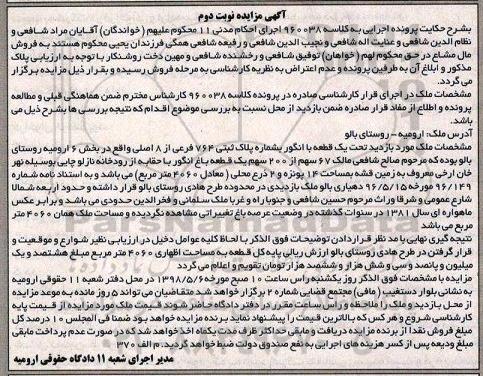 آگهی مزایده نوبت دوم
بشرح حکایت پرونده اجرایی به کلاسه ۹۶۰۰۳۸ اجرای احکام مدنی ۱۱ محکوم علیهم (خواندگان) آقایان مراد شافعی و
نظام الدین شافعی و عنایت اله شافعی و نجیب الدین شافعی و رفیعه شافعی همگی فرزندان یحیی محکوم هستند به فروش
مال مشاع در حق محکوم لهم (خواهان) توفیق شافعی و رخشنده شافعی و مهین دخت روشنکار با توجه به ارزیابی پلاک
مذکور و ابلاغ آن به طرفین پرونده و عدم اعتراض به نظریه کارشناسی به مرحله فروش رسیده و بقرار ذیل مزایده برگزار
می گردد.
مشخصات ملک در اجرای قرار کارشناسی صادره در پرونده کلاسه ۹۶۰۰۳۸ کارشناس محترم ضمن هماهنگی قبلی و مطالعه
پرونده و اطلاع از مفاد قرار صادره ضمن بازدید از محل نسبت به بررسی موضوع اقدام که نتیجه بررسی ها بشرح ذیل می
باشد.
آدرس ملک: ارومیه – روستای بالو
مشخصات ملک مورد بازدید تحت یک قطعه با انگور بشماره پلاک ثبتی ۷۶۴ فرعی از ۸ اصلی واقع در بخش ۶ ارومیه روستای
بالو بوده که مرحوم صالح شافعی مالک ۶۷ سهم از ۲۰۰ سهم یک قطعه باغ انگور با حقابه از رودخانه نازلو چایی بوسیله نهر
خان ارخی معروف به زمین قشه بمساحت ۱۴ پونزه و ۲ ذرع محلی (معادل ۴۰۶۰ متر مربع) می باشد و به استناد نامه شماره
۹۶/۱۴۹ مورخه ۹۶/۵/۱۵ دهیاری بالو ملک بازدیدی در محدوده طرح هادی روستای بالو قرار داشته و حدود اربعه شمالا
شارع عمومی و شرقا وراث مرحوم حسین شافعی و جنوبا راه و غربا ملک سلمانی و فخرالدین حدودی می باشد و برابر عکس
ماهواره ای سال ۱۳۸۱ در سنوات گذشته در وضعیت عرصه باغ تغییراتی مشاهده نگردیده و مساحت ملک همان ۴۰۶۰ متر
مربع می باشد
نتیجه گیری نهایی با مد نظر قراردادن توضیحات فوق الذکر با لحاظ کلیه عوامل دخیل در ارزیابی نظیر شوارع و موقعیت و
قرار گرفتن در طرح هادی روستای بالو ارزش ریالی پایه کل قطعه به مساحت اظهاری ۴۰۶۰ متر مربع مبلغ هشتصد و یک
میلیون و پانصد و سی و شش هزار و ششصد هزار تومان تقویم و اعلام می گردد
مزایده با مشخصات فوق الذکر روز یکشنبه راس ساعت ۱۰ صبح مورخه ۱۳۹۸/۵/۶ در محل دفتر شعبه ۱۱ حقوقی ارومیه
به نشانی بلوار دستغیب (مافی) مجتمع قضایی شماره ۲ برگزار خواهد شد متقاضیان می تواند ۵ روز مانده به موعد مزایده
از محل بازدید و ملک را ملاحظه و راس ساعت مقرر در دفتر دادگاه حاضر شوند قیمت ملک مورد مزایده از قیمت پایه
کارشناسی شروع و هر کس که بالاترین قیمت را پیشنهاد نماید برنده مزایده خواهد بود ضمنا فی المجلس ۱۰ درصد کل
مبلغ فروش نقدا از برنده مزایده دریافت و مابقی حداکثر ظرف مدت یکماه اخذ خواهد شد که در صورت عدم پرداخت مابقی
مبلغ ودیعه پس از کسر هزینه های اجرایی به نفع صندوق دولت ضبط خواهد گردید. م الف ۳۷۰
مدیر اجرای شعبه ۱۱ دادگاه حقوقی ارومیه